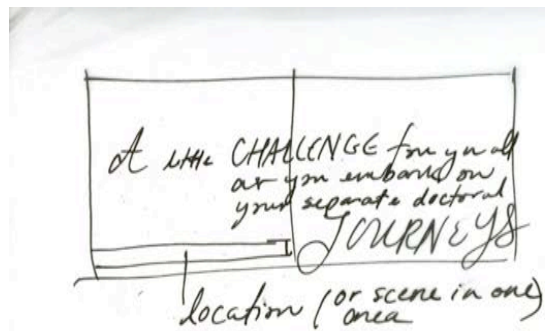 A little CHALLENGE for you all
as you embark on
your separate doctoral
JOURNEYS
location (or scene in one)
area